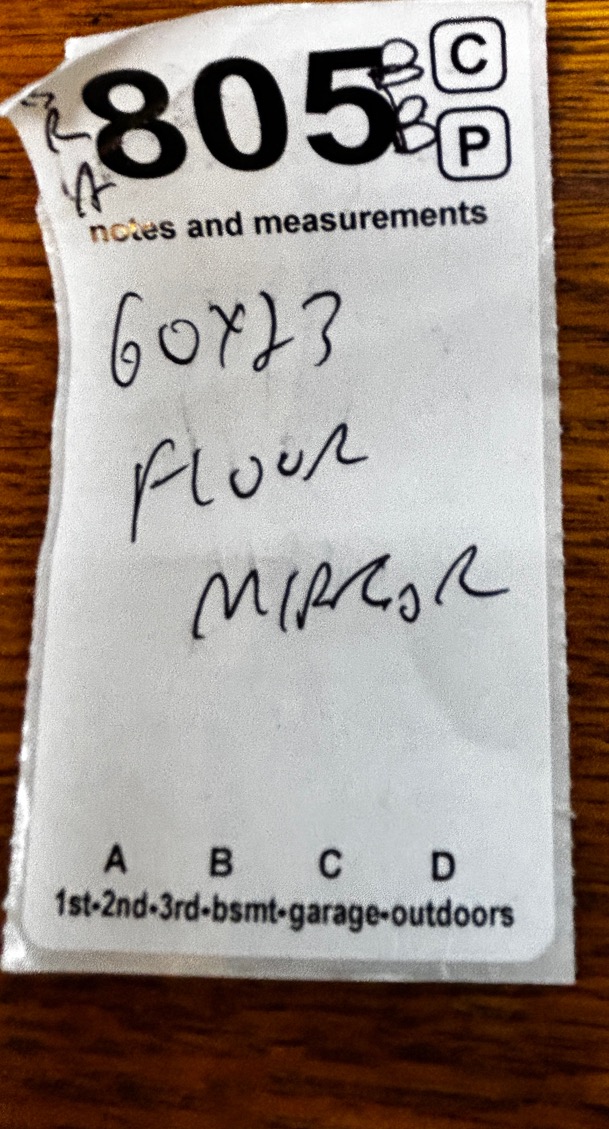 805 B C
B P
R
A
notes and measurements
60x23
FLOOR
MIRROR
A B C D
1st-2nd-3rd-bsmt-garage-outdoors